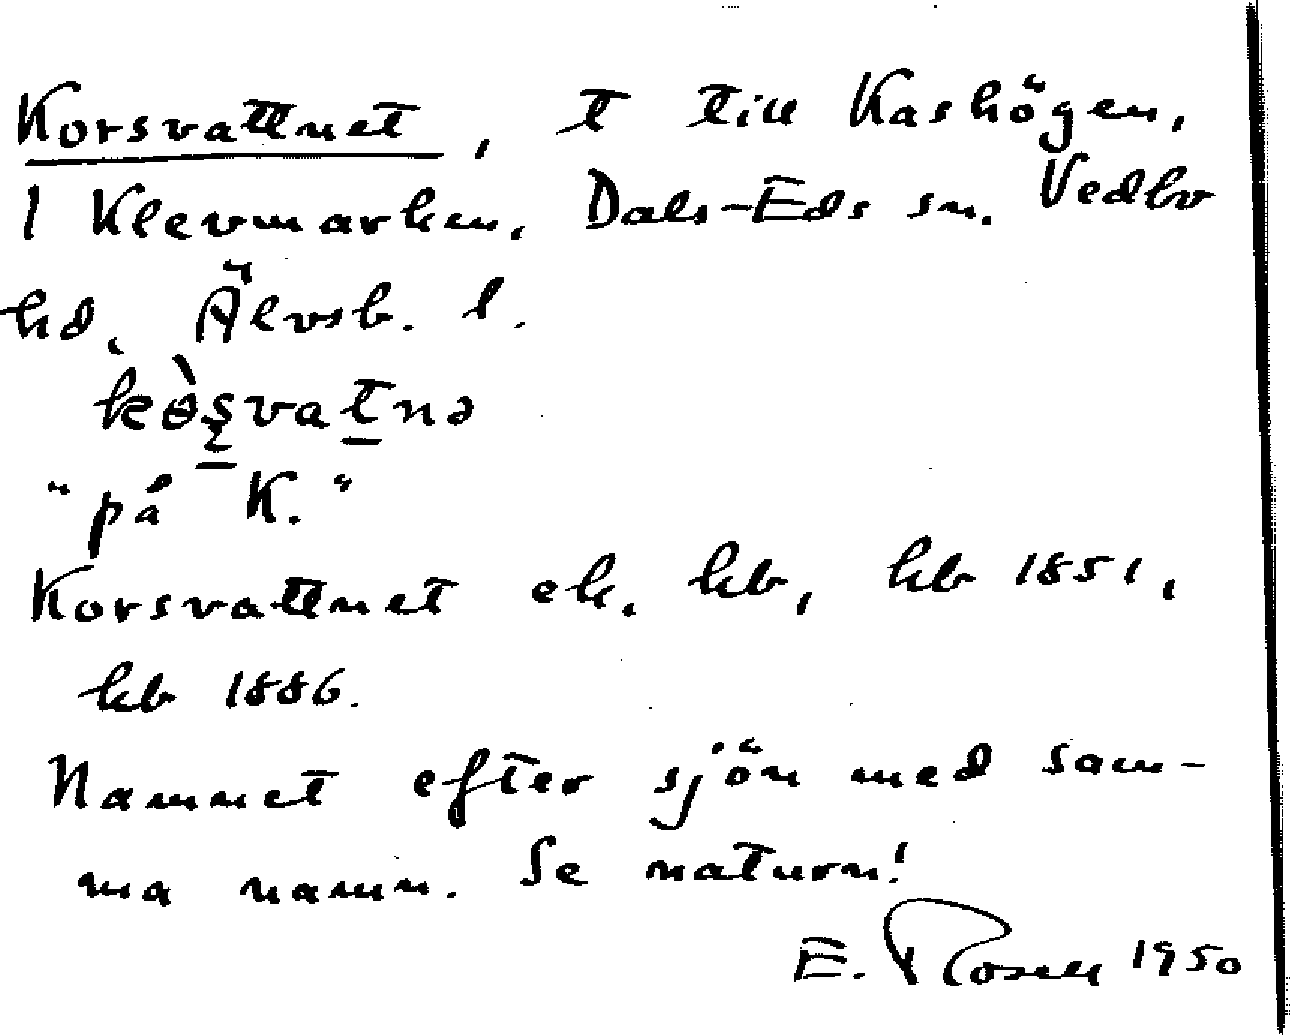 Korsvattnet, t till Kashögen,
1 Klevmarken, Dals-Eds sn. Vedbo
hd, Älvsb. l.
kòṣvatnə
"på K."
Korsvattnet ek. kb, hb 1851,
kb 1886.
Namnet efter sjön med sam-
ma namn. Se naturn!
E. Rosell 1950